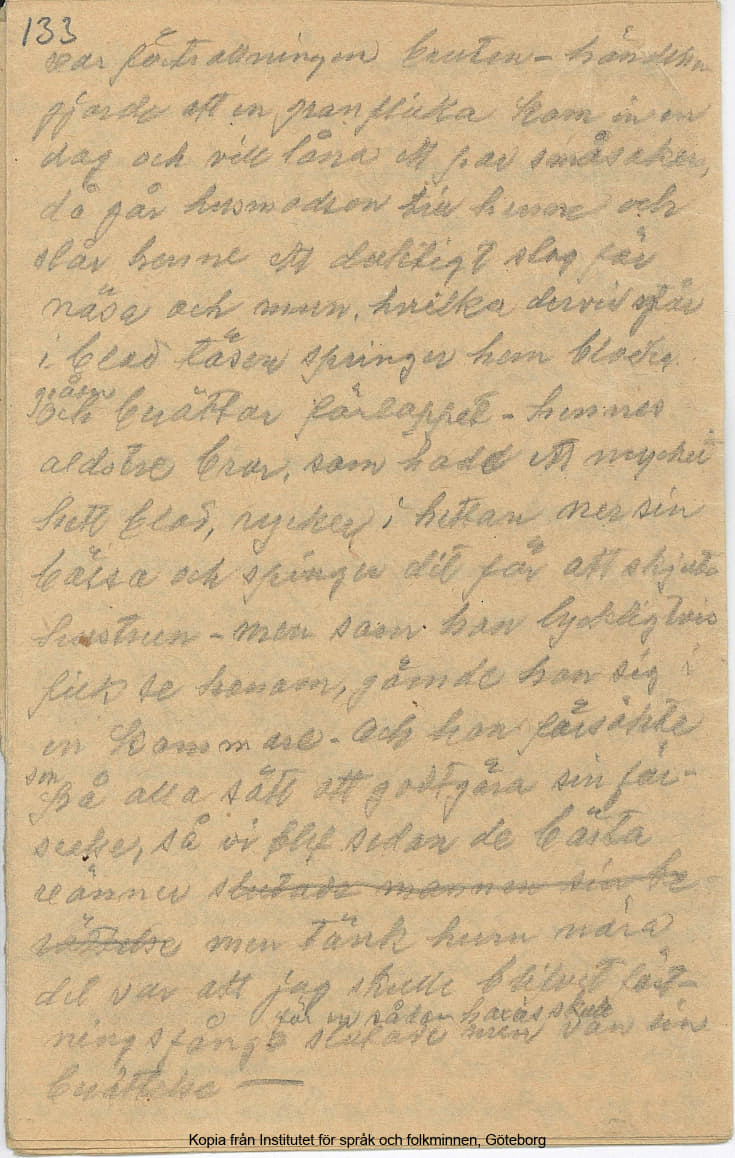 133
var förtrollningen bruten - händelsen
gjorde att en granflicka kom in en
dag och vill låna ett par småsaker,
då går husmodren till henne och
slår henne ett duktigt slag för
näsa och mun, hvilka dervid står
i blod tösen springer hem blodig
gråtan
och berättar förloppet - hennes
aldstre bror, som hade ett mycket
hett blod, rycker i hettan ner sin
bössa och springer dit för att skjuta
hustrun - men som hon lyckligtvis
fick se honom, gömde hon sig i
en kammare - och hon försökte
sen
på alla sätt att godtgöra sin för-
seelse, så vi blef sedan de bästa
vänner slutade mannen sin be
rättelse men tänk huru nära
det var att jag skulle blifvit fäst-
för en sådan haxas skull
ningsfånge slutade men van sin
berättelse —
Kopia från Institutet för språk och folkminnen, Göteborg